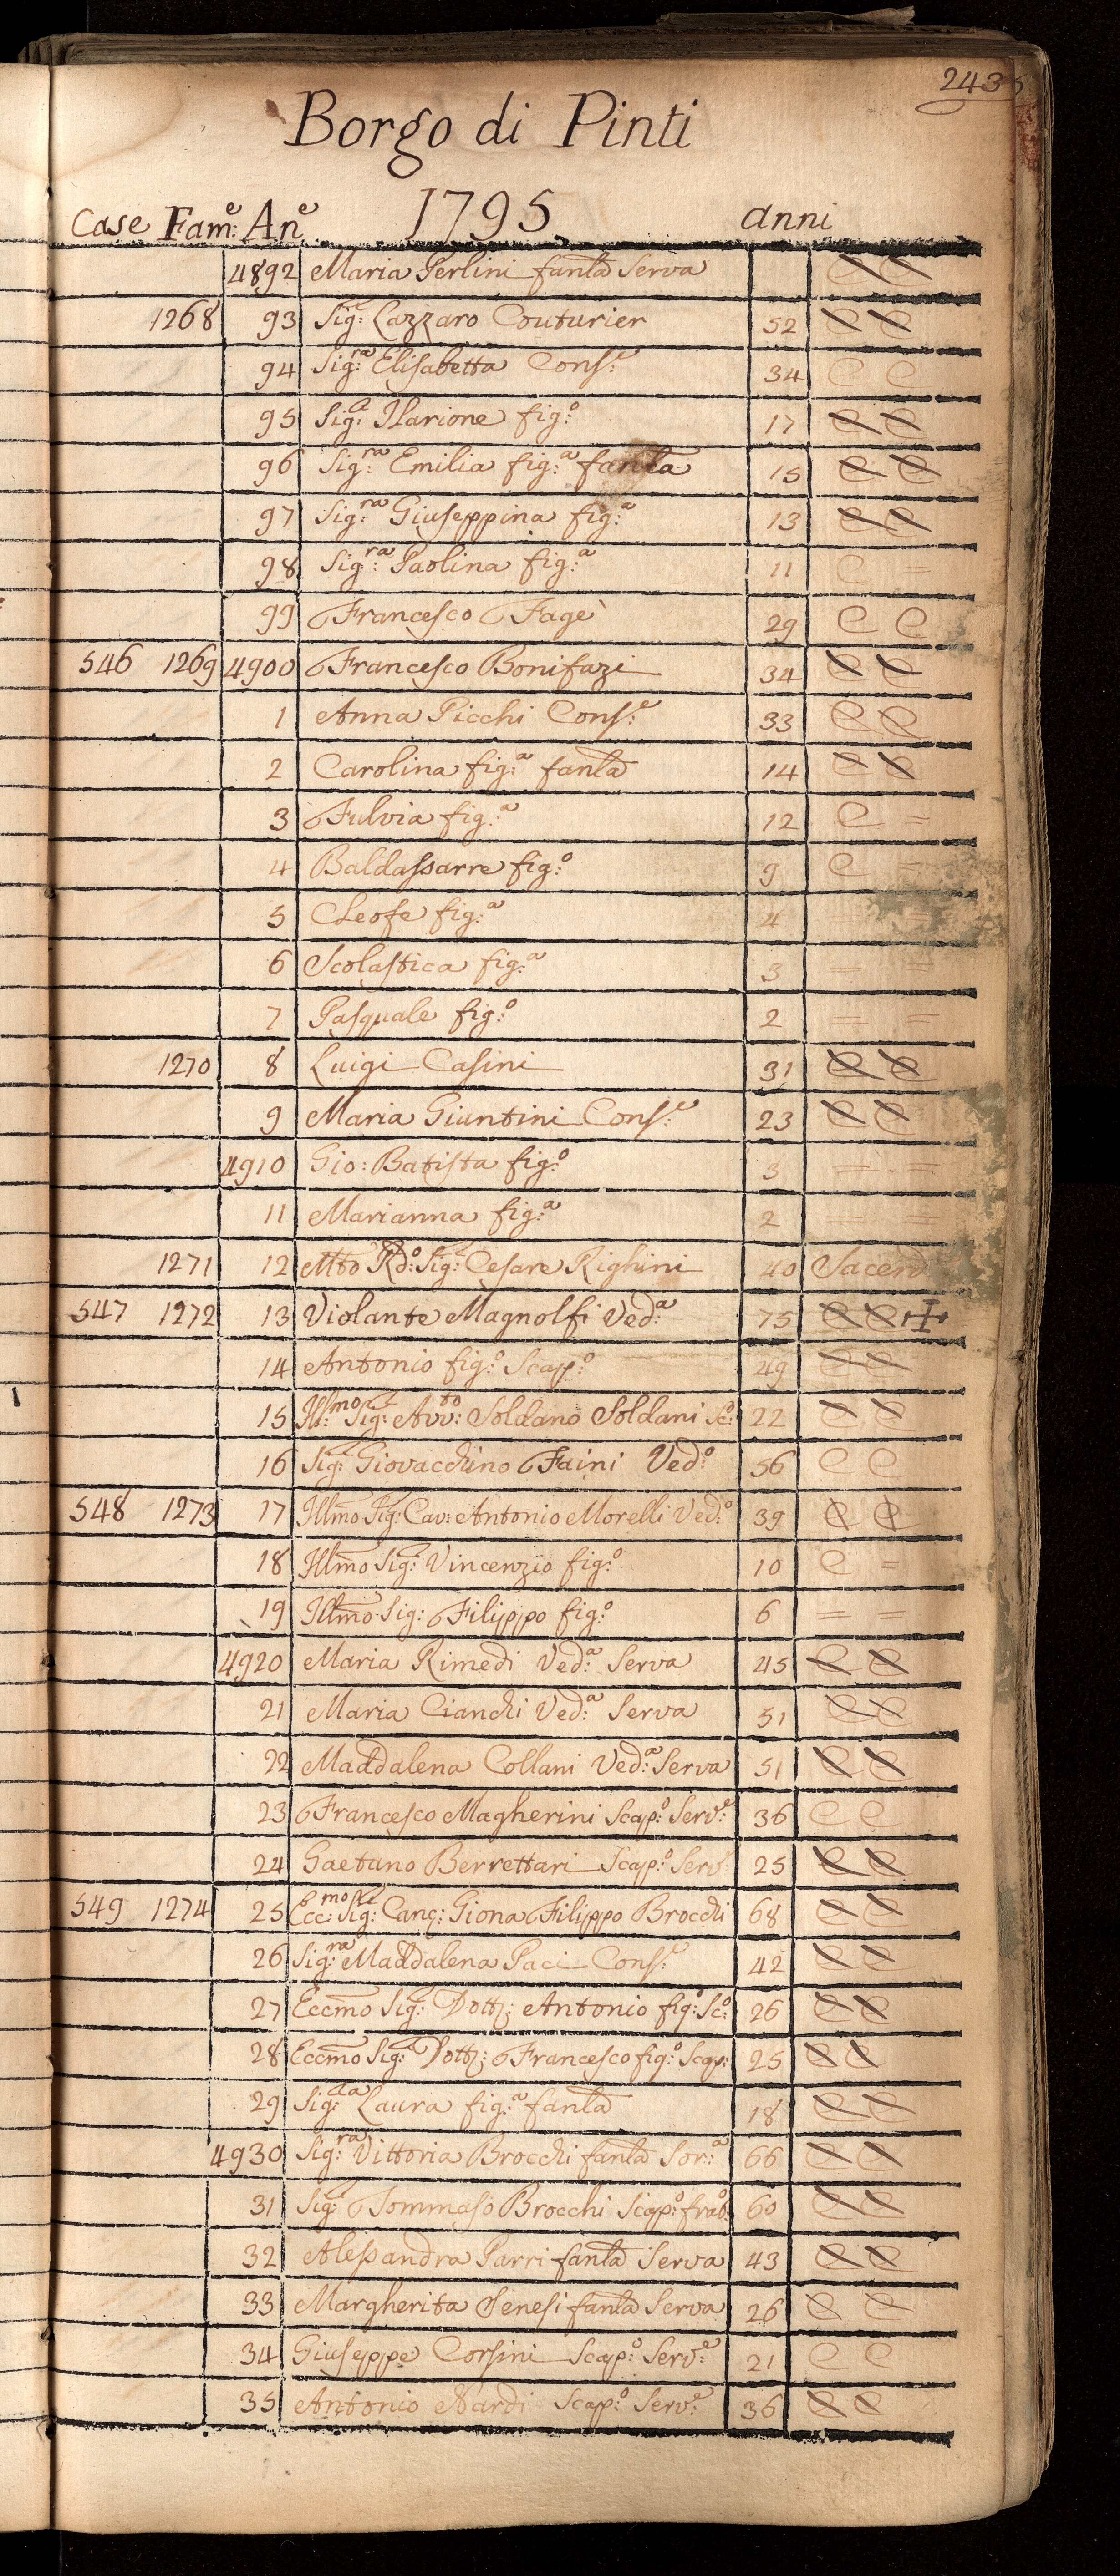 243
Borgo di Pinti
Case Fam:e An:e 1795 anni
4892 Maria Perlini fanla Serva C C
1268 93 Sig:e Lazzaro Couturier 52 C C
94 Sig:ra Elisabetta Cons:e 34 C C
95 Sig:e Ilarione fig:o 17 C C
96 Sig:ra Emilia fig:a fanla 15 C C
97 Sig:ra Giuseppina fig:a 13 C C
98 Sig:ra Paolina fig:a 11 C =
99 Francesco Fagè 29 C C
546 1269 4900 Francesco Bonifazi 34 C C
1 Anna Picchi Cons:e 33 C C
2 Carolina fig:a fanla 14 C C
3 Fulvia fig:a 12 C =
4 Baldassarre fig:o 9 C
5 Cleofe fig:a 4
6 Scolastica fig:a 3 = =
7 Pasquale fig:o 2 = =
1270 8 Luigi Casini 31 C C
9 Maria Giuntini Cons:e 23 C C
4910 Gio: Batista fig:o 3 = =
11 Marianna fig:a 2 = =
1271 12 Mto Rdo: Sig:e Cesare Righini 40 Sacerd
547 1272 13 Violante Magnolfi Ved:a 75 C C +
14 Antonio fig:o Scap:o 49 C C
15 Ill:mo Sig:e Avv:to Soldano Soldani Sc:o 22 C C
16 Sig:e Giovacchino Faini Ved:o 56 C C
548 1273 17 Illmo Sig:e Cav: Antonio Morelli Ved:o 39 C C
18 Illmo Sig:e Vincenzio fig:o 10 C =
19 Illmo Sig: Filippo fig:o 6 = =
4920 Maria Rimedi Ved:a Serva 45 C C
21 Maria Cianchi Ved:a Serva 51 C C
22 Maddalena Collani Ved:a Serva 51 C C
23 Francesco Magherini Scap:o Serv:e 36 C C
24 Gaetano Berrettari Scap:o Serv: 25 C C
549 1274 25 Ecc:mo Sig:e Canc: Giona Filippo Brocchi 68 C C
26 Sig:ra Maddalena Paci Cons:e 42 C C
27 Eccmo Sig:e Dott: Antonio fig:o Sc:o 26 C C
28 Eccmo Sig:e Dott: Francesco fig:o Scap: 25 C C
29 Sig:ra Laura fig:a fanla 18 C C
4930 Sig:ra Vittoria Brocchi fanla Sor:a 66 C C
31 Sig:e Tommaso Brocchi Scap:o frat: 60 C C
32 Alessandra Parri fanla Serva 43 C C
33 Margherita Senesi fanla Serva 26 C C
34 Giuseppe Corsini Scap:o Serv:e 21 C C
35 Antonio Nardi Scap:o Serv:e 36 C C